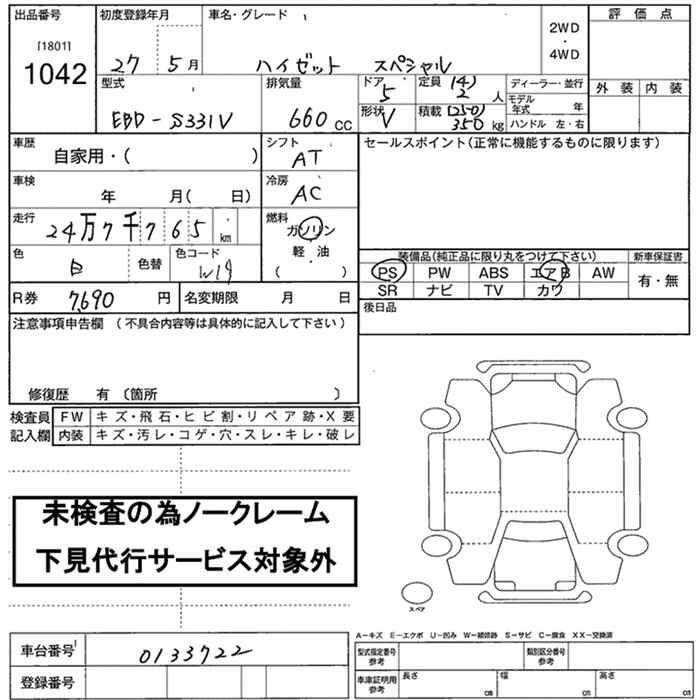 出品番号
[1801]
1042
初度登録年月
27 5月
車名・グレード
ハイゼット スペシャル
2WD
・
4WD
評価点
外装 内装
型式
EBD-S331V
排気量
660 cc
ドア
5
形状
V
定員 (4)
2 人
積載 (250)
350 kg
ディーラー・並行
モデル年式 年
ハンドル 左・右
車歴
自家用・( )
シフト
AT
セールスポイント(正常に機能するものに限ります)
車検
年 月( 日)
冷房
AC
走行
24万7千765 km
燃料
ガソリン
軽・油
( ・ )
色
白
色替
色コード
W19
装備品(純正品に限り丸をつけて下さい)
PS PW ABS エアB AW
SR ナビ TV カワ
新車保証書
有・無
R券 7,690 円
名変期限 月 日
後日品
注意事項申告欄 (不具合内容等は具体的に記入して下さい)
修復歴 有 〔箇所 〕
検査員記入欄
FW キズ・飛石・ヒビ割・リペア跡・X要
内装 キズ・汚レ・コゲ・穴・スレ・キレ・破レ
未検査の為ノークレーム
下見代行サービス対象外
スペア
車台番号 0133722
登録番号
A-キズ E-エクボ U-凹み W-補修跡 S-サビ C-腐食 XX-交換済
型式指定番号参考
類別区分番号参考
車庫証明用参考
長さ cm 幅 cm 高さ cm